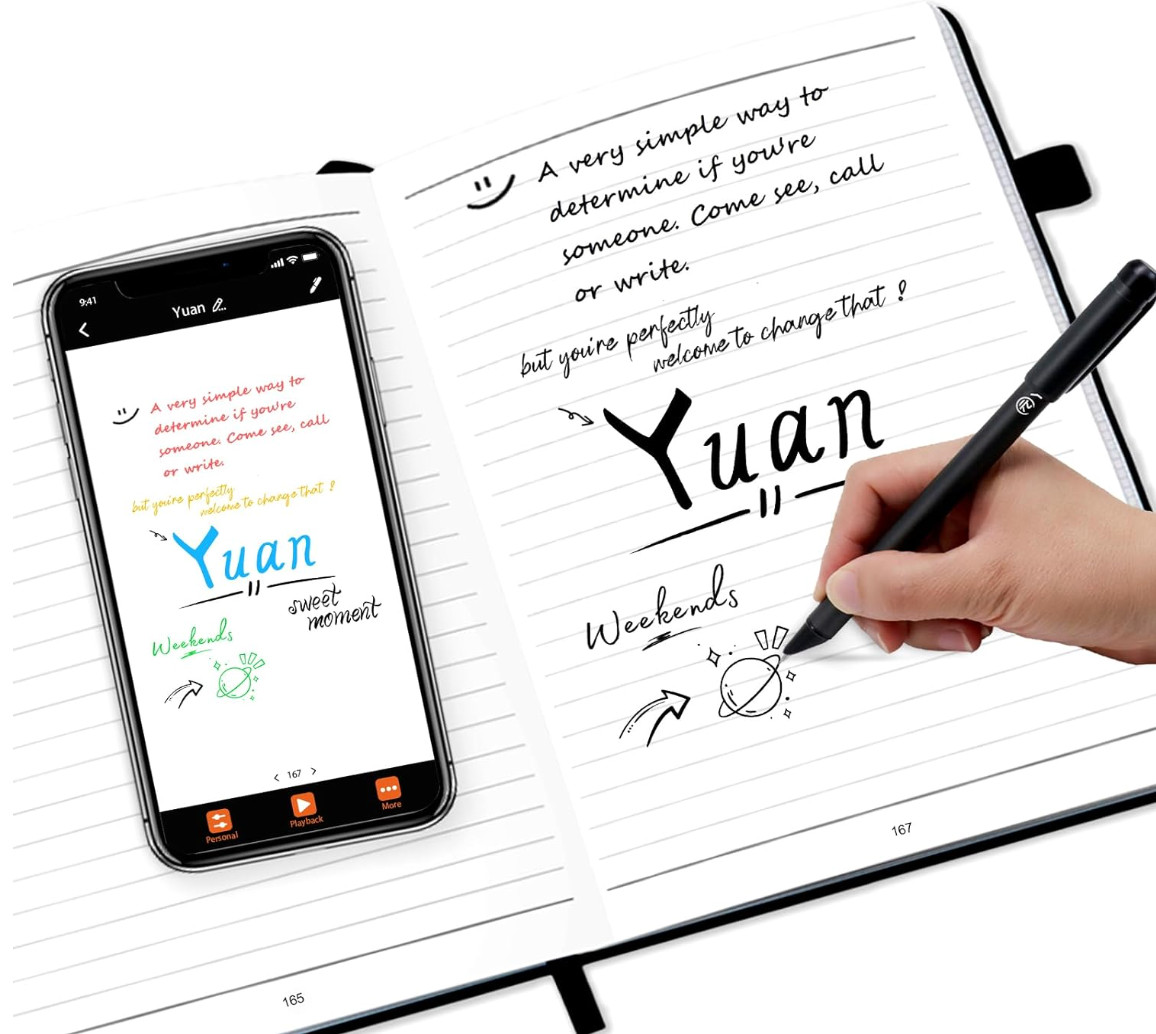 9:41
Yuan
A very simple way to
determine if you're
someone. Come see, call
or write.
but you're perfectly
welcome to change that !
Yuan
sweet
moment
Weekends
< 167 >
Personal
Playback
More
165
A very simple way to
determine if you're
someone. Come see, call
or write.
but you're perfectly
welcome to change that !
Yuan
Weekends
167